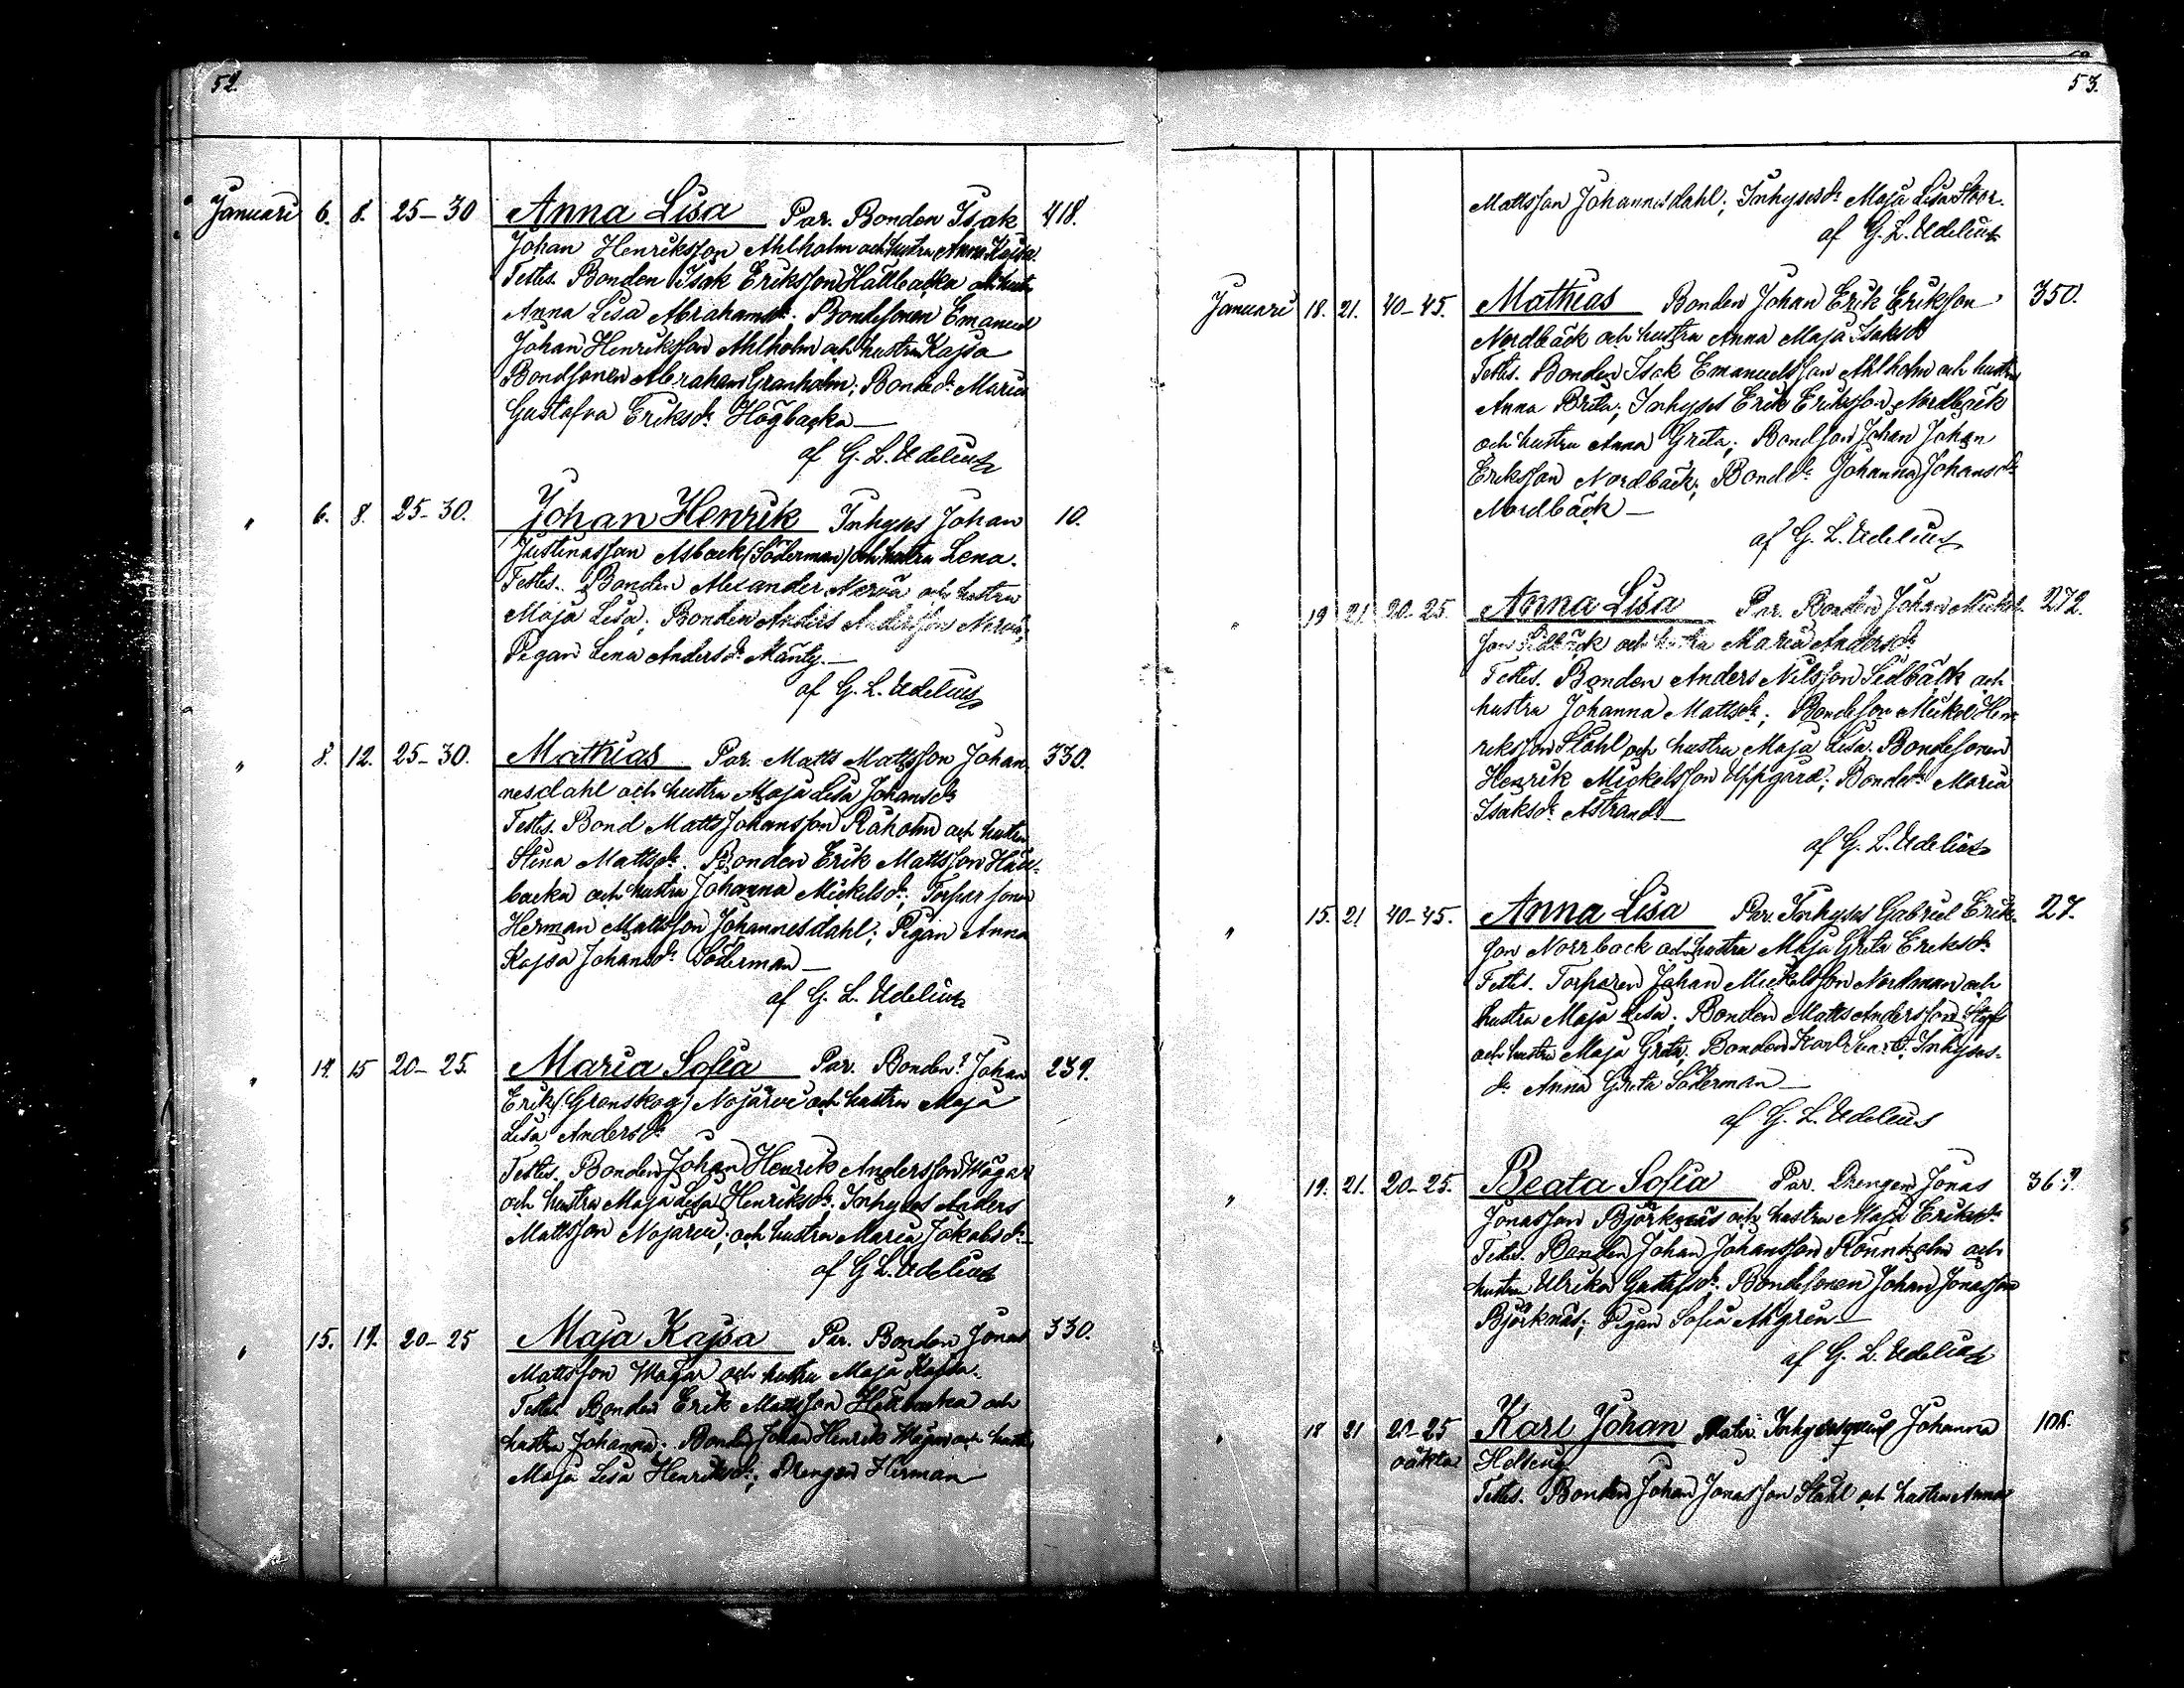 52.
Januari 6. 8. 25–30 Anna Lisa Par. Bonden Isak 418.
Johan Henriksson Ahlholm och hustru Anna Kajsa
Testes. Bonden Isak Eriksson Hällbacka och hustru
Anna Lisa Abrahamsdr. Bondesonen Emanuel
Johan Henriksson Ahlholm och hustru Kajsa
Bondsonen Abraham Granholm; Bonded. Maria
Gustafva Eriksdr. Högbacka —
af G. L. Adelius
" 6. 8. 25–30. Johan Henrik Inhyses Johan 10.
Justinasson Asback (Söderman) och hustru Lena.
Testes. Bonden Alexander Nerva och hustru
Maja Lisa; Bonden Anders Andersson Nerva;
Pigan Lena Andersdr. Mänty. —
af G. L. Adelius
" 8. 12. 25–30. Mathias Par. Matts Mattsson Johan 330.
nesdahl och hustru Maja Lisa Johansdr
Testes. Bond Matts Johansson Råholm och hustru
Stina Mattsdr. Bonden Erik Mattsson Häll-
backa och hustru Johanna Mickelsdr; Torparsonen
Herman Mattsson Johannesdahl; Pigan Anna
Kajsa Johansdr. Söderman —
af G. L. Adelius
" 14. 15 20–25. Maria Sofia Par. Bonden? Johan 239.
Erik (Granskog) Nojärvi och hustru Maja
Lisa Andersdr
Testes. Bonden Johan Henrik Andersson Wägar
och hustru Maja Lisa Henriksdr; Inhyses Anders
Mattsson Nojärvi; och hustru Maria Jakobsdr —
af G L. Adelius
" 15. 19. 20–25 Maja Kajsa Par. Bonden Jonas 330.
Mattsson Wägar och hustru Maja Kajsa.
Testes Bonden Erik Mattsson Hällbacka och
hustru Johanna; Bonden Johan Henrik Wägar och hustru
Maja Lisa Henriksdr; Drengen Herman
53.
Mattsson Johannesdahl; Inhysesdr Maja Lisa Stoor.
af G. L. Adelius
Januari 18. 21. 40–45. Mathias Bonden Johan Erik Eriksson 350.
Nordbäck och hustru Anna Maja Isaksdr
Testes. Bonden Isak Emanuelsson Ahlholm och hustru
Anna Brita; Inhyses Erik Eriksson Nordbäck
och hustru Anna Greta; Bondson Johan Johan
Eriksson Nordbäck; Bondd. Johanna Johansdr
Nordbäck —
af G. L. Adelius
" 19 21 20–25. Anna Lisa Par. Bonden Johan Mickels- 272.
son Sidbäck och hustru Maria Andersdr
Testes. Bonden Anders Nilsson Sidbäck och
hustru Johanna Mattsdr; Bondeson Mickel Hen
riksson Ståhl och hustru Maja Lisa. Bondesonen
Henrik Mickelsson Uppgård; Bondedr. Maria
Isaksdr. Åstrand —
af G. L. Adelius
" 15. 21 40–45. Anna Lisa Par. Inhyses Gabriel Erik- 27.
son Norrback och hustru Maja Greta Eriksdr
Testes. Torparen Johan Mickelsson Nordman och
hustru Maja Lisa; Bonden Matts Andersson
och hustru Maja Greta; Bonden Karl Inhyses-
dr Anna Greta Söderman —
af G. L. Adelius
" 19. 21. 20–25. Beata Sofia Par. Drengen Jonas
Jonasson Björknäs och hustru Maja Eriksdr
Testes. Bonden Johan Johansson Rönnholm och
hustru Ulrika Gustafsdr; Bondesonen Johan Jonasson
Björknäs; Pigan Sofia Ahlgren —
af G. L. Adelius
" 18 21 20–25 Karl Johan Mater. Johanna
oäkta
Testes. Bonden Johan Jonasson Ståhl och hustru Anna